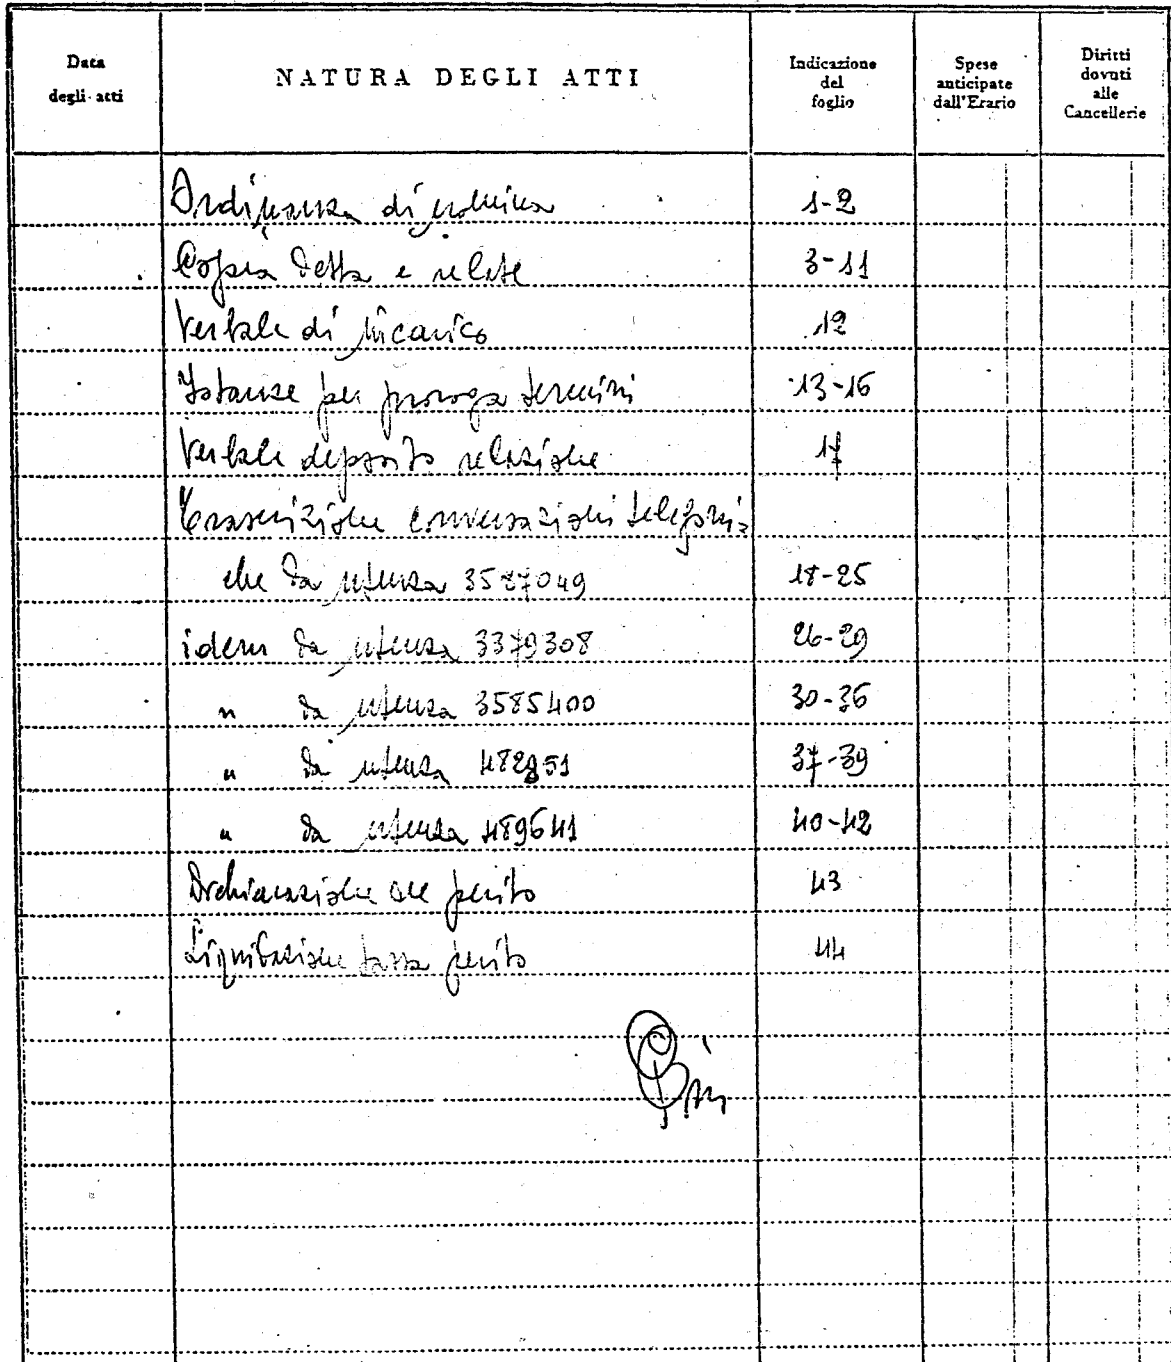 Data degli atti
NATURA DEGLI ATTI
Indicazione del foglio
Spese anticipate dall'Erario
Diritti dovuti alle Cancellerie
Ordinanza di nomina 1-2
Copia detta e relate 3-11
Verbale di incarico 12
Istanze per proroga termini 13-16
Verbale deposito relazione 17
Trascrizione conversazioni telefoni=
che da utenza 3587049 18-25
idem da utenza 3379308 26-29
" da utenza 3585400 30-36
" da utenza 482951 37-39
" da utenza 489641 40-42
Dichiarazione del perito 43
Liquidazione tassa perito 44